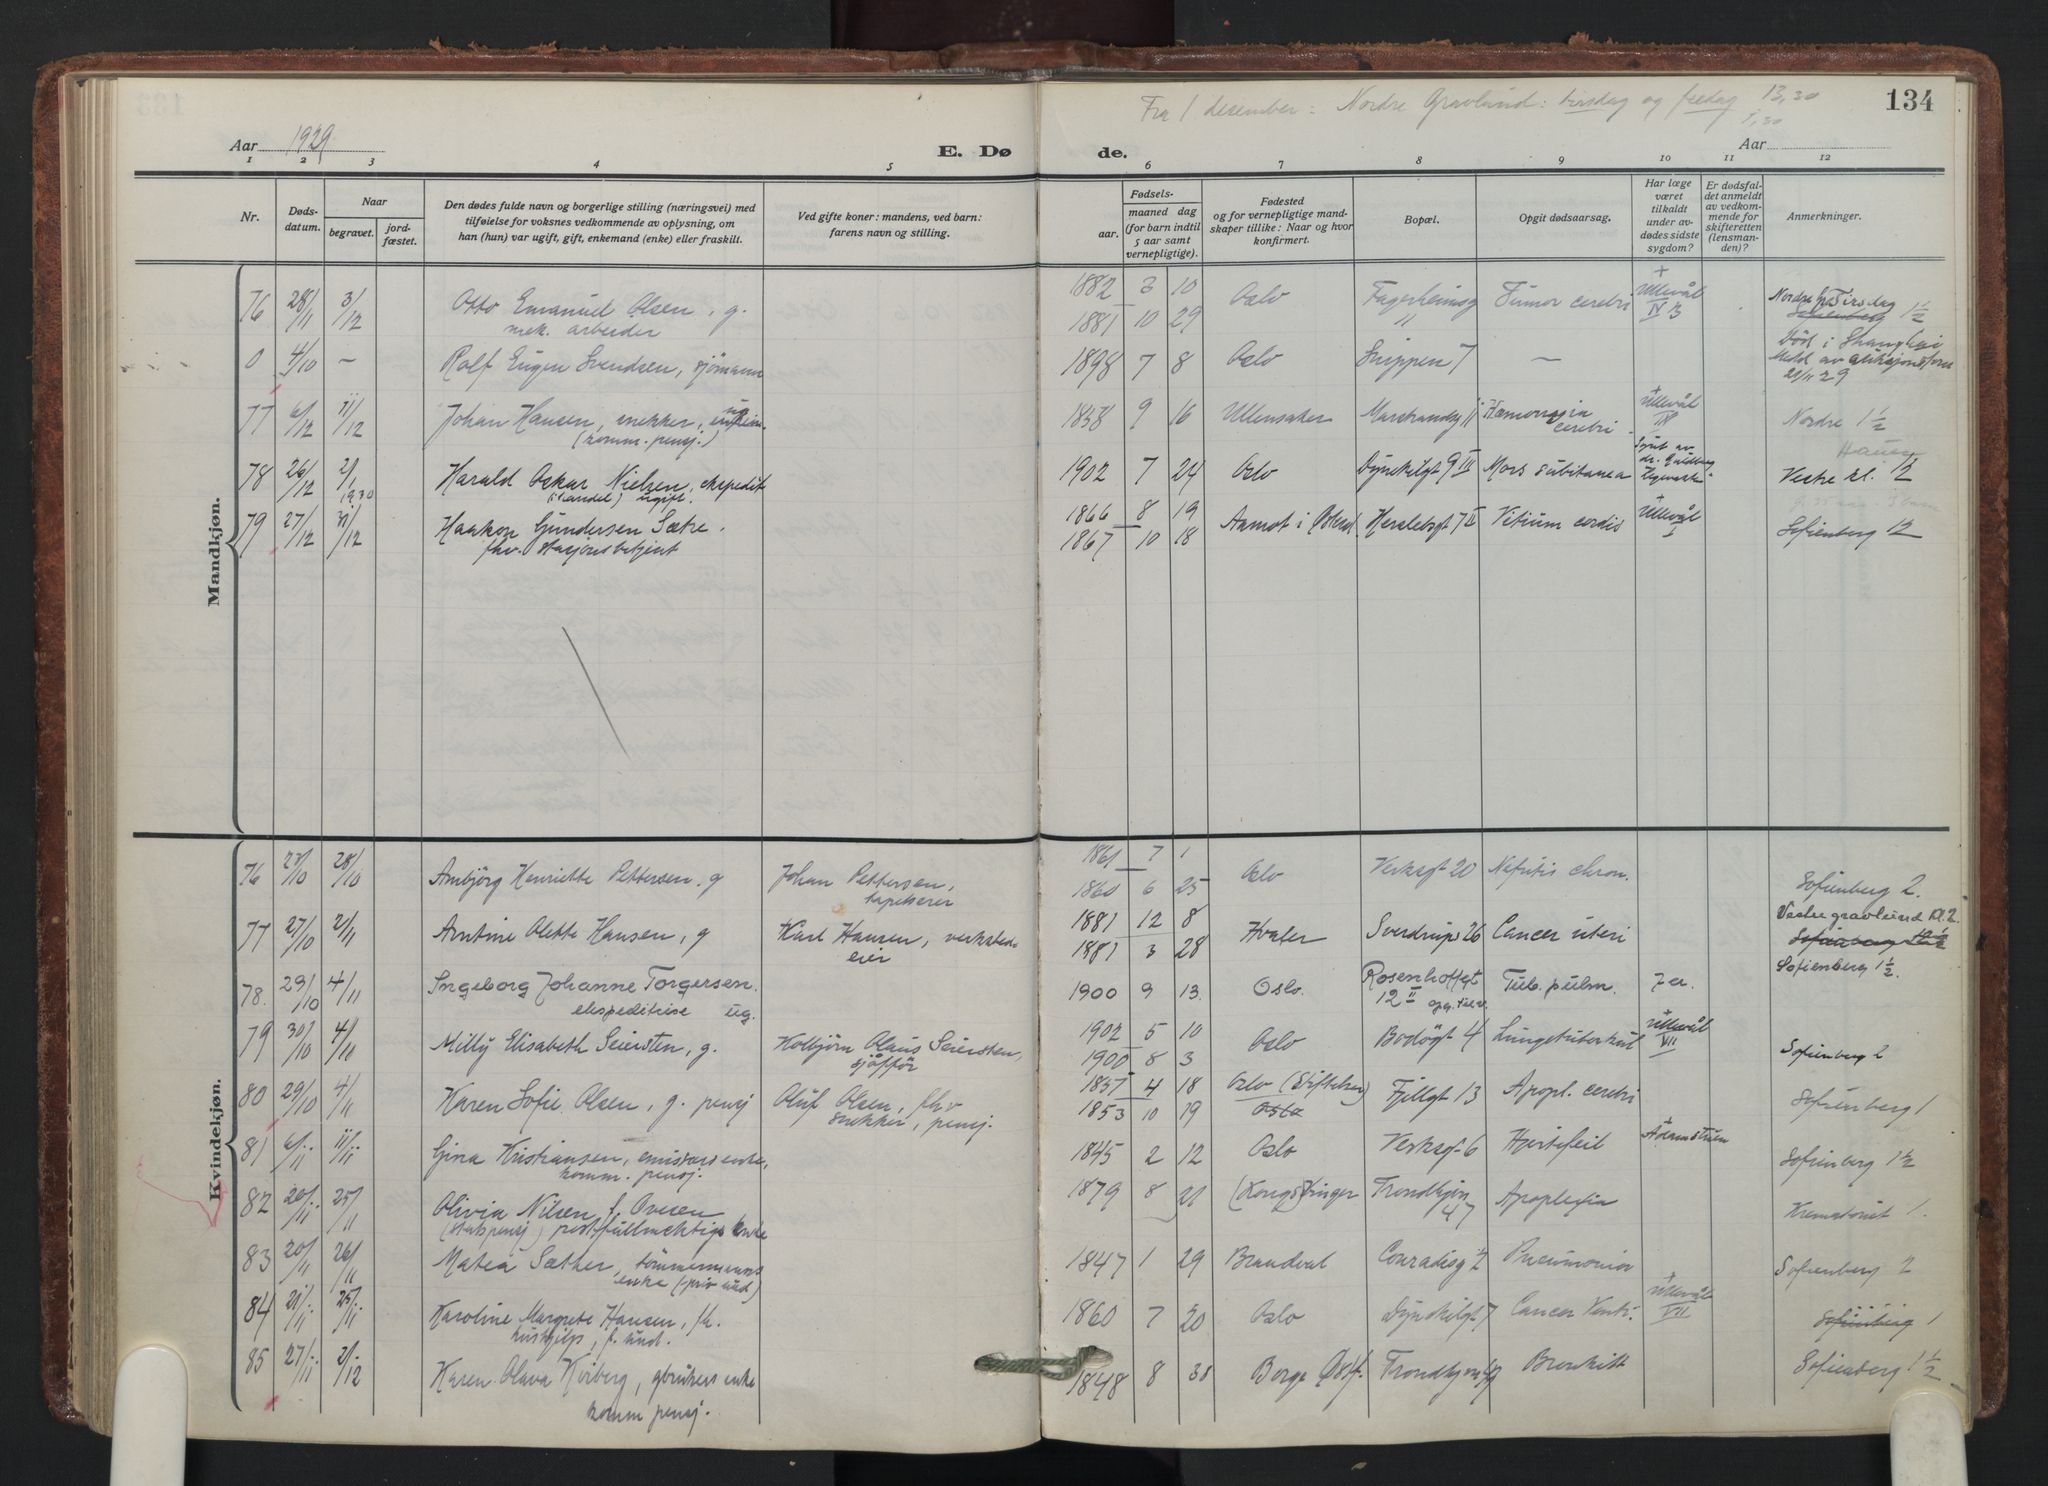 Fra 1 desember: Nordre Gravlund: tirsdag og fredag 13,30
134
Aar 1929
E. Dø
de.
Aar
1 2 3 4 5 6 7 8 9 10 11 12
Nr.
Døds-
datum.
Naar
begravet.
jord-
fæstet.
Den dødes fulde navn og borgerlige stilling (næringsvei) med
tilføielse for voksnes vedkommende av oplysning, om
han (hun) var ugift, gift, enkemand (enke) eller fraskilt.
Ved gifte koner: mandens, ved barn:
farens navn og stilling.
Fødsels-
aar.
maaned
dag
(for barn indtil
5 aar samt
vernepligtige).
Fødested
og for vernepligtige mand-
skaper tillike: Naar og hvor
konfirmert.
Bopæl.
Opgit dødsaarsag.
Har læge
været
tilkaldt
under av-
dødes sidste
sygdom?
Er dødsfal-
det anmeldt
av vedkom-
mende for
skifteretten
(lensman-
den)?
Anmerkninger.
Mandkjøn.
76 28/11 3/12 Otto Emanuel Olsen, g. 1882 3 10 Oslo Fagerheimsg Tumor cerebri + Ullevål IV B Nordre Tirsdag
mek. arbeider 1881 10 29 11 Sofienberg 1½
0 4/10 — Rolf Eugen Svendsen, sjömann 1898 7 8 Oslo Snippen 7 — Död i Shanghai
21/11 29
77 6/12 11/12 Johan Hansen, snekker, 1858 9 16 Ullensaker Marstrandsg 11 Hæmorragia + Ullevål Nordre 1½
(komm. pensj.) cerebri
78 26/12 2/1 1930 Harald Oskar Nielsen, ekspedit 1902 7 24 Oslo Dynekilgt 9 III Mors subitanea Vestre kl. 12
(handel) ugift.
79 27/12 31/12 Haakon Gundersen Sætre. 1866 8 19 Aamot i Österd. Herslebsgt 7 II Vitium cordis + Ullevål I Sofienberg 12
fhv. stasjonsbetjent 1867 10 18
Kvindekjøn.
76 23/10 28/10 Ambjörg Henriette Pettersen, g Johan Pettersen, 1861 7 1 Oslo Verksgt 20 Nefritis chron. Sofienberg 2.
tapetserer 1860 6 25
77 27/10 2/11 Antine Olette Hansen, g Karl Hansen, verksted- 1881 12 8 Hvaler Sverdrups 26 Cancer uteri Vestre gravlund kl. 2
eier 1881 3 28
78. 29/10 4/11 Ingeborg Johanne Torgersen. 1900 9 13. Oslo. Rosenhoffgt Tub. pulm. Sofienberg 1½.
ekspeditrise ug. 12 II
79 30/10 4/11 Milly Elisabeth Seiersten, g. Kolbjörn Olaus Seiersten, 1902 5 10 Oslo Bodögt 4 Lungetuberkul Ullevål VII Sofienberg 2
sjåför 1900 8 3
80 29/10 4/11 Karen Sofie Olsen, g. pensj Oluf Olsen, fhv 1857 4 18 Oslo (Stiftelsen) Fjellgt 13 Apopl. cerebri Sofienberg 1
snekker, pensj. 1853 10 19 Oslo
81 6/11 11/11 Gina Kristiansen, emissærs enke, 1845 2 12 Oslo Verksgt 6 Hjertefeil Adamstuen Sofienberg 1½
komm. pensj.
82 20/11 25/11 Olivia Nilsen f. Ovesen 1879 8 21 (Kongs)vinger Trondhjem Apoplexia Krematoriet 1.
(statspensj) postfullmektigs enke 47
83 20/11 26/11 Matea Sæther, tömmermanns 1847 1 29 Brandval Conradisg 2 Pneumonia Sofienberg 2
enke (priv und)
84 21/11 25/11 Karoline Margrete Hansen, fh. 1860 7 20 Oslo Dynekilgt 7 Cancer Ventr. + Ullevål VII Sofienberg 1
hushjelp, f. und.
85 27/11 2/12 Karen Olava Kirberg, gbrukers enke 1848 8 30 Borge Östf. Trondhjem Bronkitt Sofienberg 1½
komm pensj.